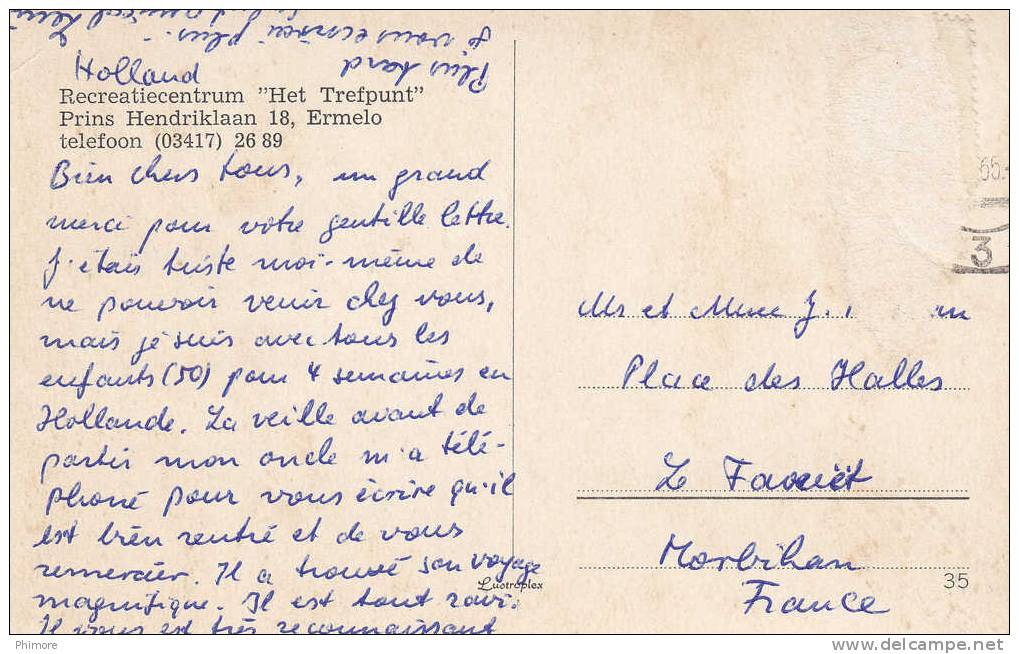 Plus tard
je vous écrirai plus.
Holland
Recreatiecentrum "Het Trefpunt"
Prins Hendriklaan 18, Ermelo
telefoon (03417) 26 89
Bien chers tous, un grand
merci pour votre gentille lettre.
J'étais triste moi-même de
ne pouvoir venir chez vous,
mais je suis avec tous les
enfants (50) pour 4 semaines en
Hollande. La veille avant de
partir mon oncle m'a télé-
phoné pour vous écrire qu'il
est bien rentré et de vous
remercier. Il a trouvé son voyage
magnifique. Il est tout ravi.
Il vous est très reconnaissant
Luotroplex
65.
3
Mr et Mme J.
Place des Halles
Le Faouët
Morbihan
France
35
Phimore
www.delcampe.net